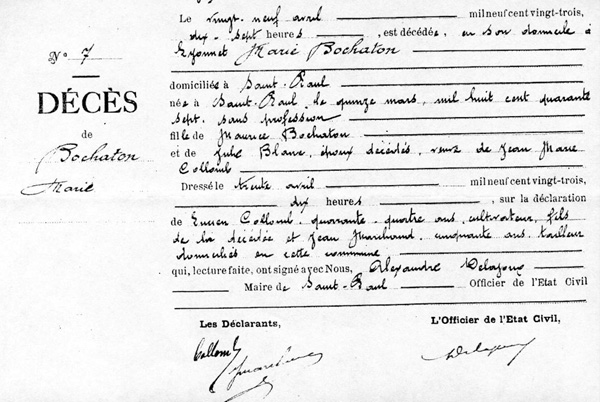 Le vingt-neuf avril mil neuf cent vingt-trois,
dix-sept heures, est décédée, en son domicile à
Marie Bochaton
domiciliés à Saint-Paul
née à Saint-Paul, le quinze mars, mil huit cent quarante
sept, sans profession
fille de Maurice Bochaton
et de Julie Blanc, époux décédés, veuve de Jean Marie
Collomb
Dressé le trente avril mil neuf cent vingt-trois,
dix heures, sur la déclaration
de Lucien Collomb, quarante-quatre ans, cultivateur, fils
de la décédée et Jean Marchand, cinquante ans, tailleur
domiciliés en cette commune
qui, lecture faite, ont signé avec Nous, Alexandre Delajoux
Maire de Saint-Paul Officier de l'Etat Civil
N° 7
DÉCÈS
de
Bochaton
Marie
Les Déclarants,
L'Officier de l'Etat Civil,
Collomb